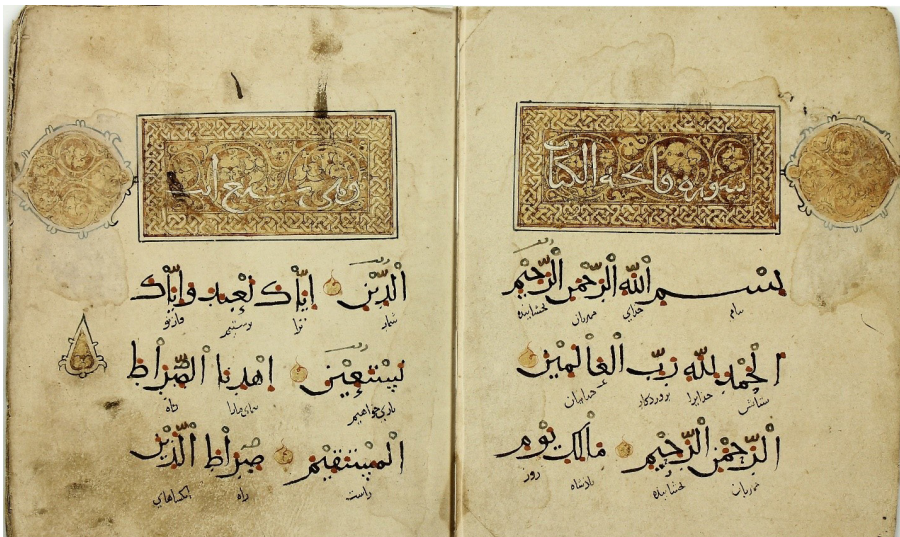 سورة فاتحة الكتاب
بِسْمِ اللّٰهِ الرَّحْمٰنِ الرَّحِيْمِ
بنام خدای مهربان بخشاینده
اَلْحَمْدُ لِلّٰهِ رَبِّ الْعَالَمِيْنَ
ستایش خدایرا پروردگار جهانیان
الرَّحْمٰنِ الرَّحِيْمِ مَالِكِ يَوْمِ
مهربان بخشاینده پادشاه روز
وهي سبع ايات
الدِّيْنِ اِيَّاكَ نَعْبُدُ وَاِيَّاكَ
شمار ترا پرستیم
نَسْتَعِيْنُ اِهْدِنَا الصِّرَاطَ
یاری خواهیم راه
الْمُسْتَقِيْمَ صِرَاطَ الَّذِيْنَ
راست راه